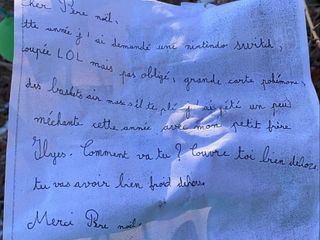 Cher Père noël,
tte année j'ai demandé une nintendo switch,
coupée LOL mais pas obligé, grande carte pokémon,
des baskets air max s'il te plé j'ai été un peu
méchante cette année avec mon petit frère
Ilyes. Comment va tu ? Couvre toi bien dehors
tu vas avoir bien froid dehors
Merci Père noël